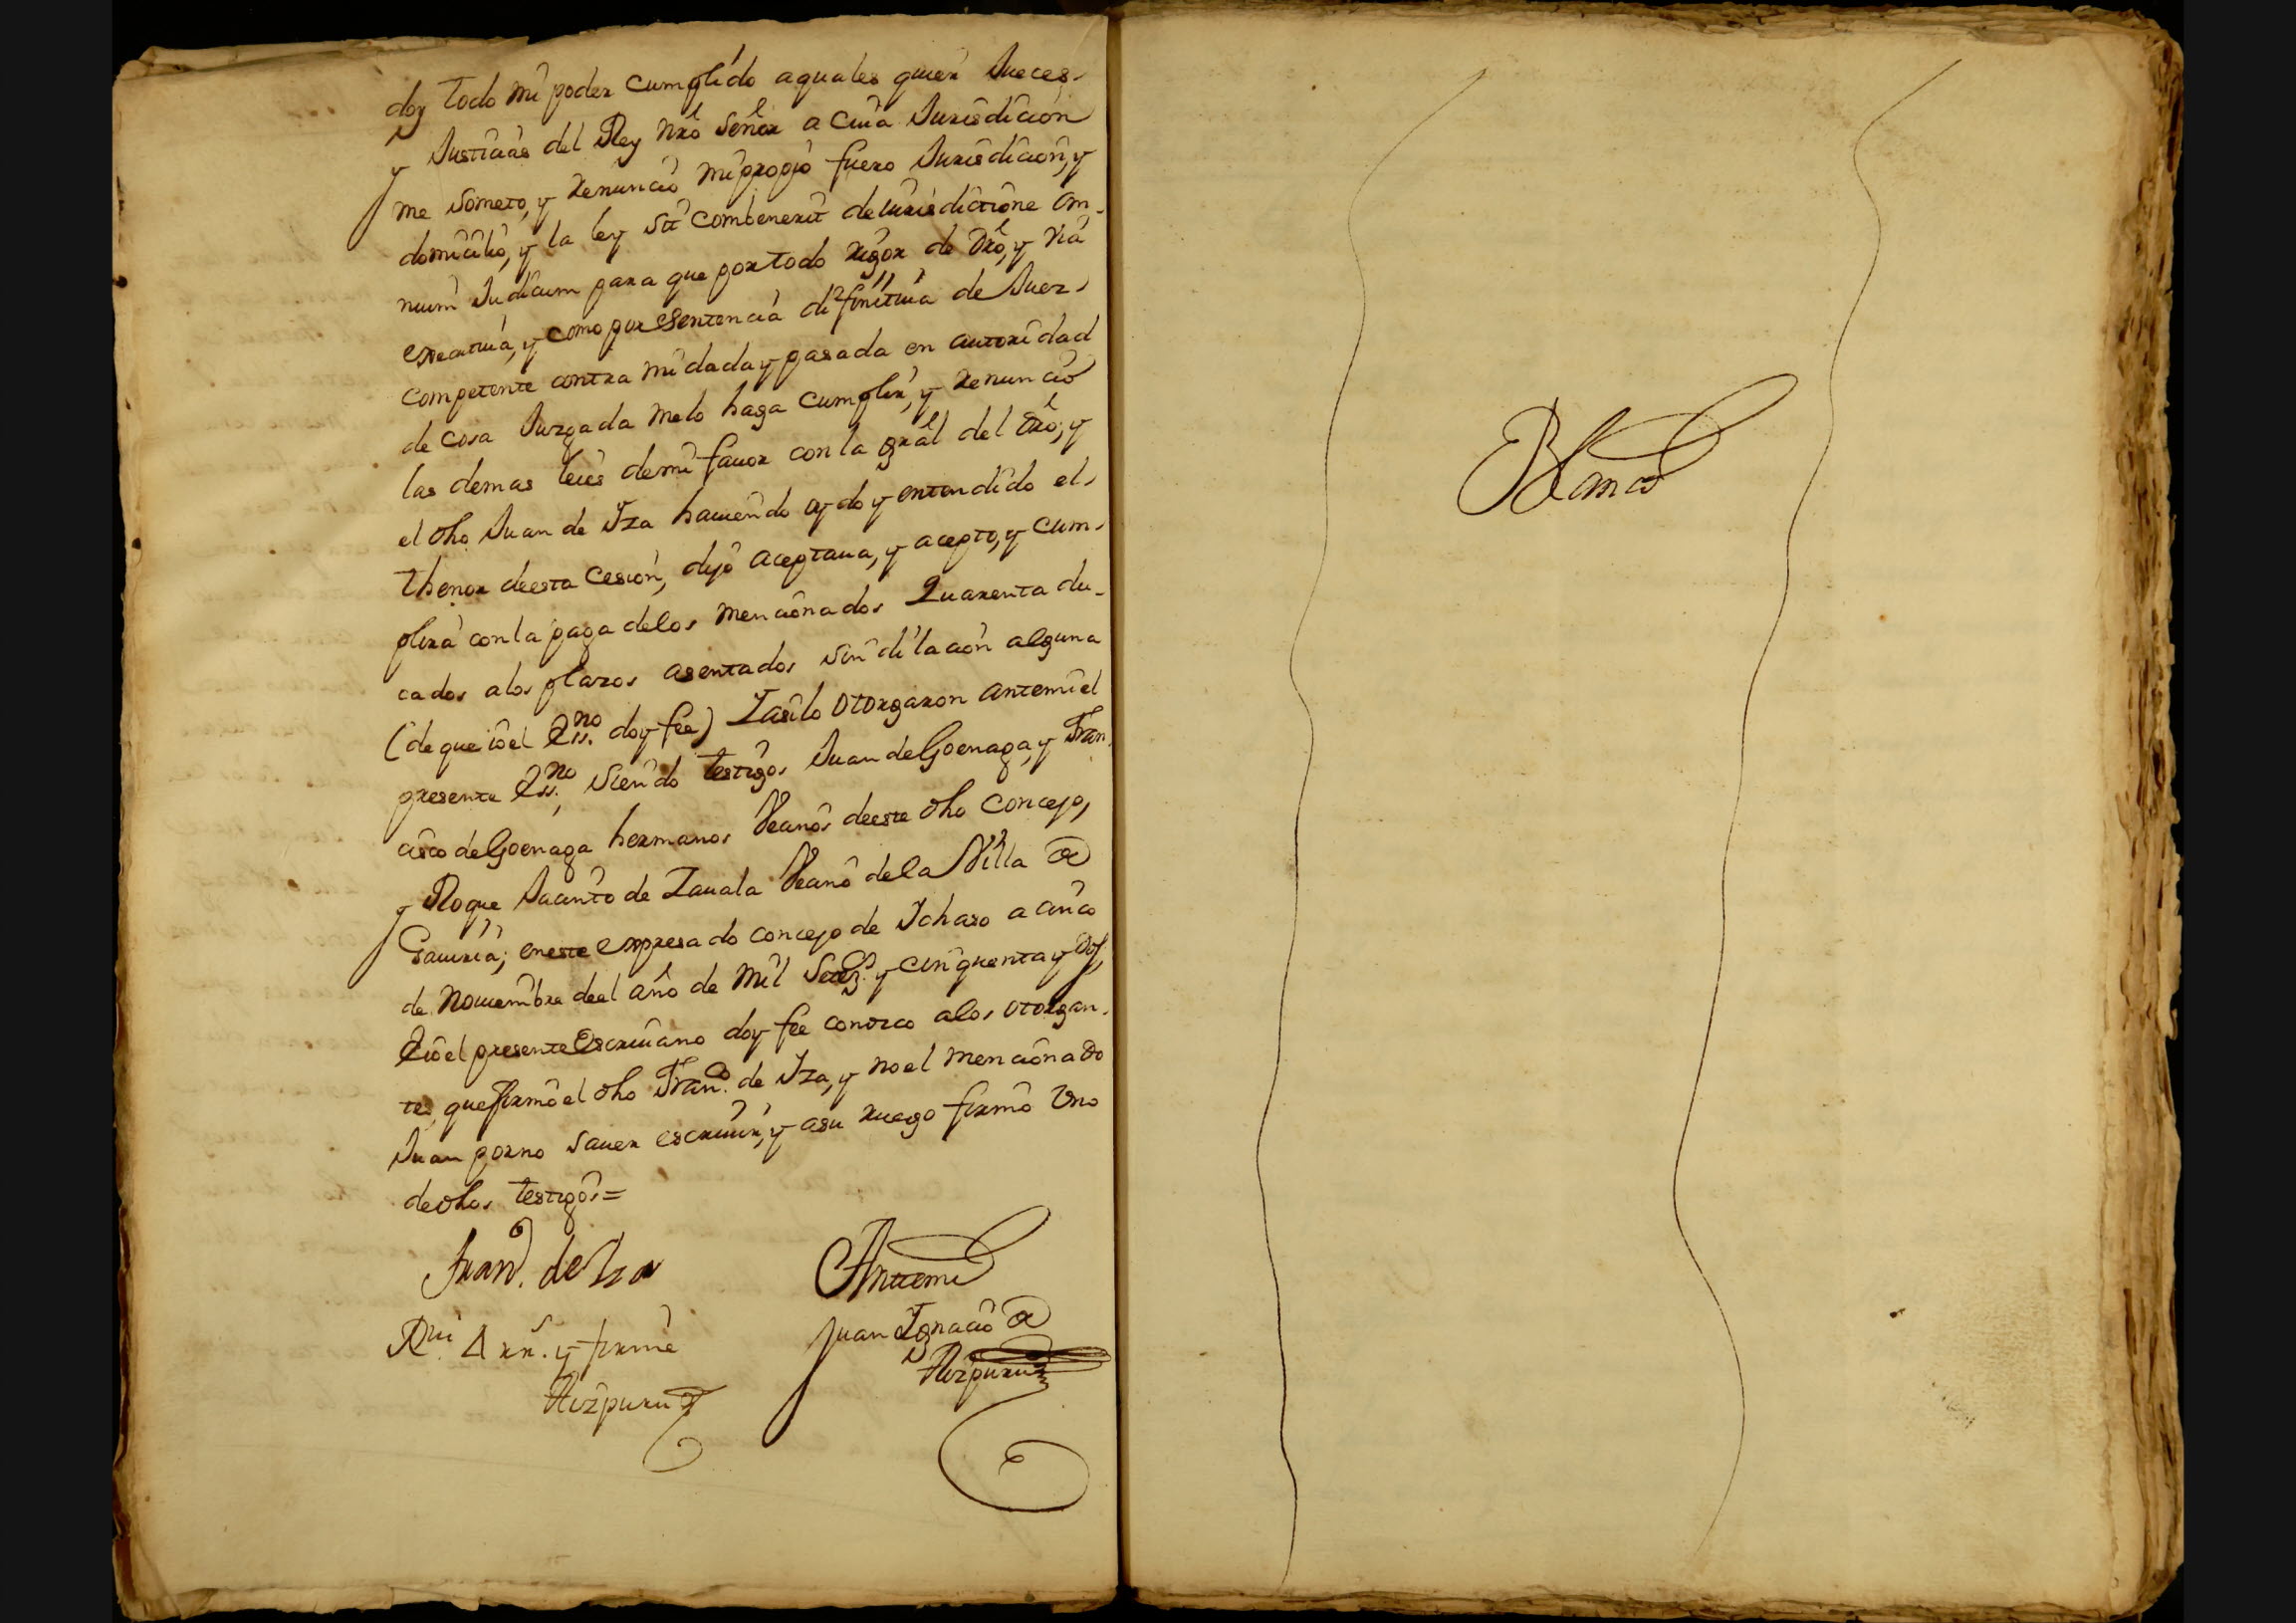 doy todo mi poder cumplido aquales quier Jueces
y Justicias del Rey nrô señor a cuia Jurisdicion
me someto, y renuncio mi propio fuero Jurisdicion, y
domicilio, y la ley sit combenerit de Jurisdictione om-
nium Judicum para que por todo rigor de drô, y via
executiua, y como por sentencia difinitiua de Juez
competente contra mi dada y pasada en autoridad
de cosa Juzgada melo haga cumplir, y renuncio
las demas leies demi fauor con la gral del drô, y
el dho Juan de Iza hauiendo oydo y entendido el
thenor deesta Cesion, dijo aceptaua, y acepto, y cum-
plira con la paga delos mencionados Quarenta du-
cados alos plazos asentados sin dilacion alguna
(de que io el Essno. doy fee) Iasilo otorgaron antemi el
presente Essno. siendo testigos Juan de Goenaga, y Fran
cisco de Goenaga hermanos Vecinos deeste dho Concejo,
y Roque Jacinto de Zauala Vecino dela Villa de
Gauiria; eneste expresado concejo de Ichaso a cinco
de Nouiembre deel año de mil Setezs. y cinquenta y dos,
E io el presente Escriuano doy fee conozco alos otorgan-
tes, que firmo el dho Franco. de Iza, y no el mencionado
Juan por no sauer escriuir, y asu ruego firmo Vno
de dhos testigos=
Franco. de Iza
Antemi
Juan Ignacio de
Aizpuru
Rui 4 rrs. y firme
Aizpuru
Blanco